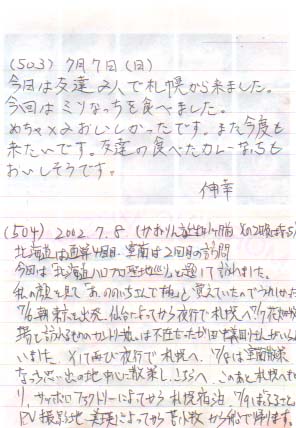 (503) 7月7日(日)
今日は友達2人で札幌から来ました。
今回はミソなっちを食べました。
めちゃ×2おいしかったです。また今度も
来たいです。友達の食べたカレーなっちも
おいしそうです。
伸幸
(504) 2002.7.8
北海道は通算4回目、室蘭は2回目の訪問
今回は「北海道ハロプロ聖地巡り」と題して訪れました。
私の顔を見て「あ、」と覚えていたのでうれしかった
7/6 朝東京を出発、仙台によってから夜行で札幌へ。7/7 花畑牧
場を訪れるもののカントリー娘。は不在だったが田中義剛さんがいら
いました。そして再び夜行で札幌へ、7/8は室蘭散策
なっち思い出の地中心に散策し、こちらへ。このあと札幌へもど
り、サッポロファクトリーによってから札幌宿泊、7/9はふるさと
PV撮影地・美瑛によってから苫小牧から船で帰ります。